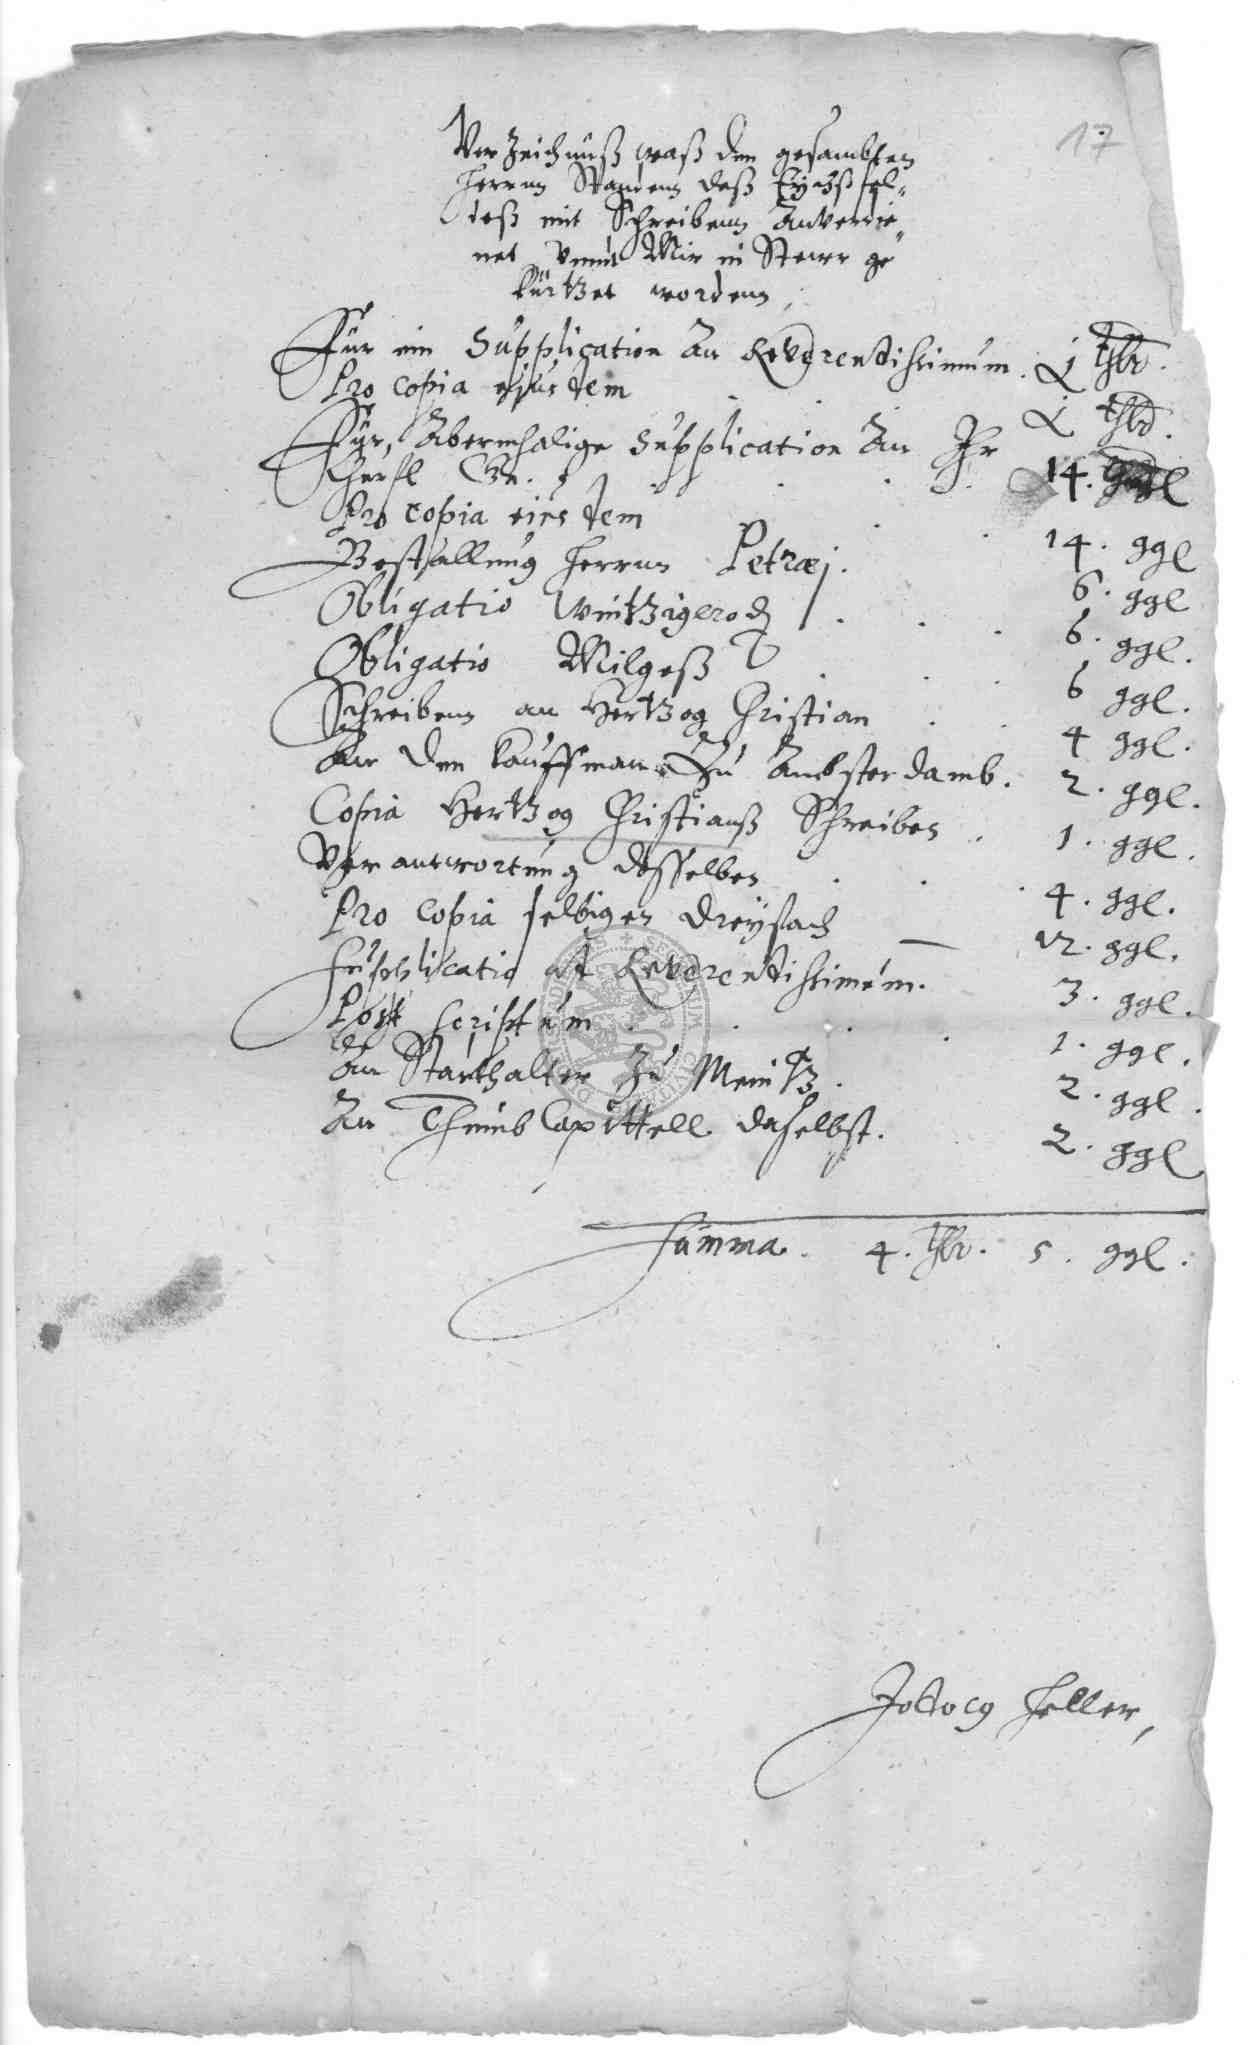 17
Verzeichnuß waß den gesambten
Herrnn Standenn deß Eychßfel-
deß mit Schreibenn anverdie-
net vnnd Mir in Stewr ge-
kürtzet wordenn
Für ein Supplication an Reverendissimum. 1 thlr.
Pro copia ejusdem . . . 1 thlr.
Für abermhalige Supplication an Ihr
Churfl Gn. . . . 14. ggl
Pro copia eiusdem . . 14. ggl
Bestallung Herrnn Petræj. 6. ggl
Obligatio Wintzigerod . . . 6. ggl.
Obligatio Milgeß . . . 6 ggl.
Schreibenn an Hertzog Christian . . 4 ggl.
An den Kauffman zu Ambsterdamb. 2. ggl.
Copia Hertzog Christianß Schreiben . 1. ggl.
Verantwortung desselben . . . 4. ggl.
Pro copia selbigen dreyfach — 12. ggl.
Supplicatio ad Reverendissimum. 3. ggl.
Post scriptum . . . . 1. ggl.
An Stathalter zu Meintz. 2. ggl.
An Thumb Capittell daselbst. 2. ggl
Summa. 4. thlr. 5. ggl.
Jodocq Heller,